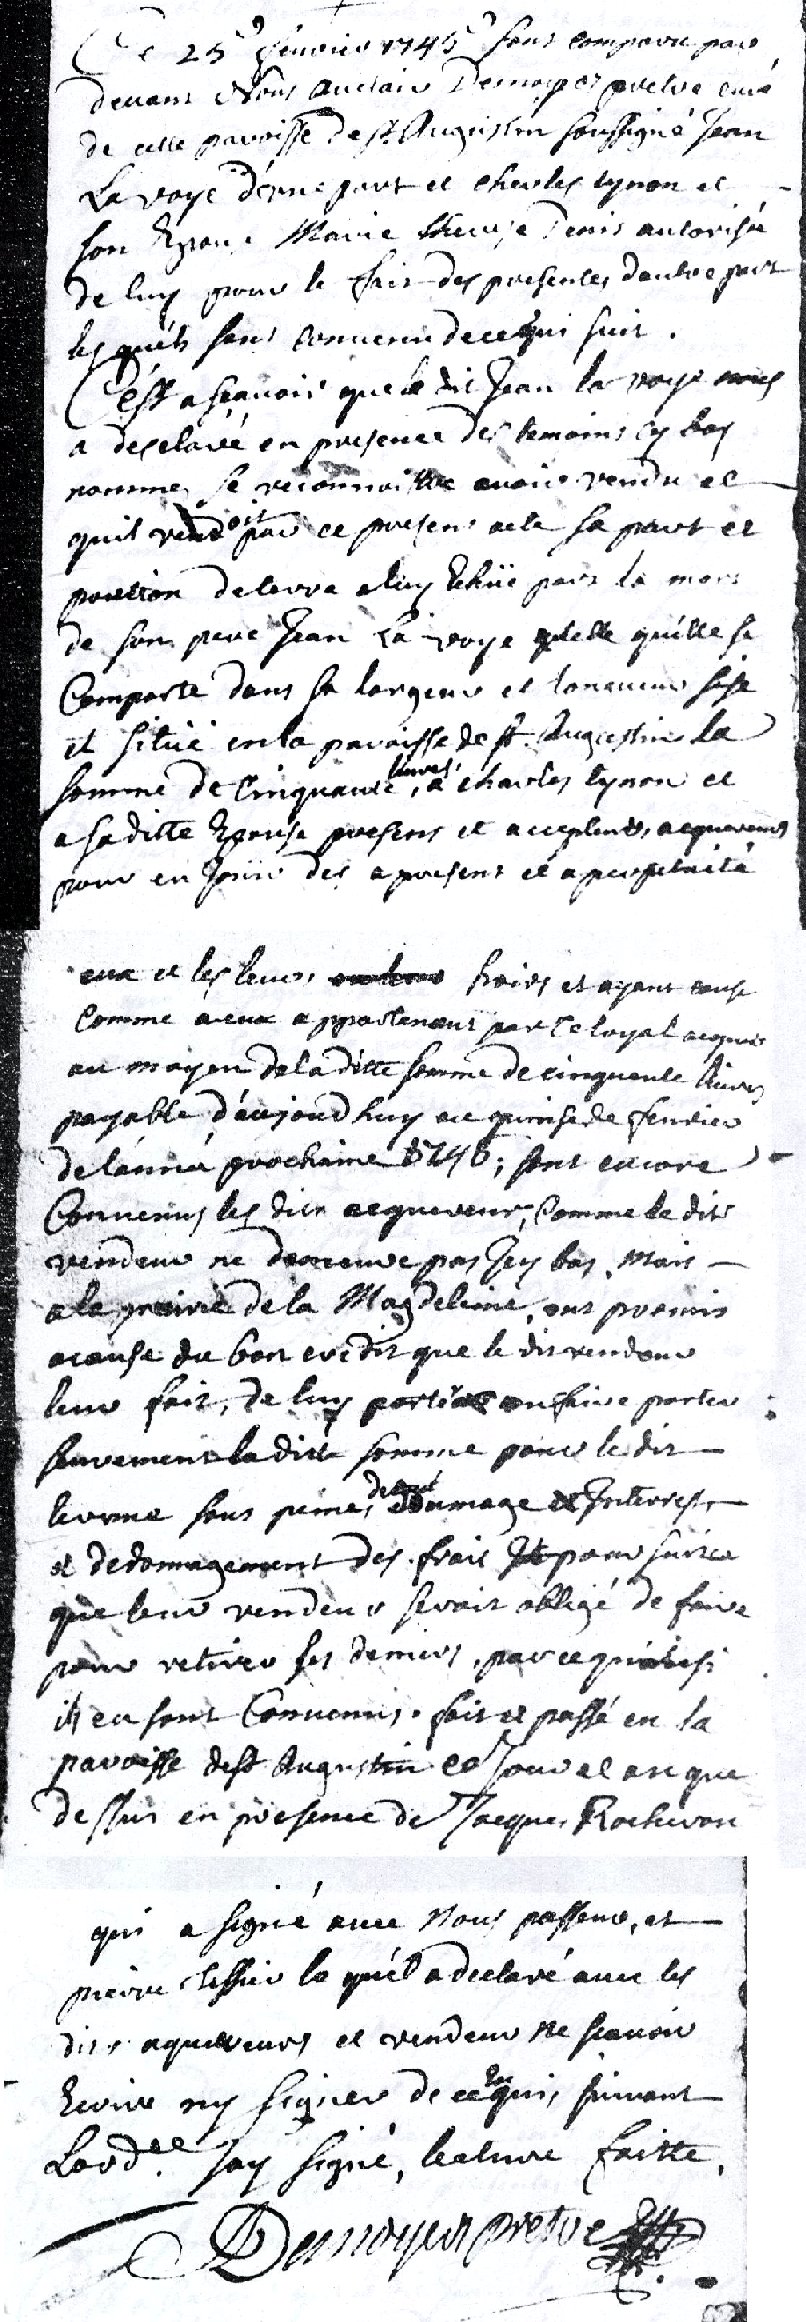 Ce 25e fevrier 1745 sont comparu par
devant Nous Auclair Desnoyers pretre curé
de cette paroisse de st Augustin soussigné Jean
La voye d'une part et charles tynon et
son Epouse Marie therese Denis autorisée
de luy pour le fait des presentes d'autre part
lesquéls sont convenu de ce qui suit.
C'est a sçavoir que le dit Jean la voye
a desclaré en presence des temoins cy bas
nommes se reconnoistre avoir vendu et
quil vendoit par ce present acte sa part et
portion de terre a luy Echüe par la mort
de son pere Jean La voye telle quélle se
Comporte dans sa largeur et longueur sise
et situé en la paroisse de st Augustin la
somme de cinquante livres, a charles tynon et
a saditte Epouse presens et acceptents, acquereurs
pour en Joüir des a present et a perpetuité
eux et les leurs hoirs et ayant cause
Comme a eux appartenant par le loyal acquis
au moyen de la ditte somme de cinquante livres
payable d'aujourdhuy au quinse de fevrier
de l'anneé prochaine 1746; sont encore
Convenus les dits acquereurs, Comme le dit
vendeur ne demeure pas Jcy bas, Mais
a la prairie de la Magdeleine, ont promis
acause du bon credit que le dit vendeur
leur fait, de luy porter ou faire porter
seurement la ditte somme pour le dit
terme sous peine, de tout domage et Interrest,
et dedomagement des frais et poursuites
que leur vendeur seroit obligé de faire
pour retirer ses deniers, parce qu'ainsi
ils en sont Convenus. fait et passé en la
paroisse de st Augustin ce Jour et an que
dessus en presence de Jacques Rocheron
qui a signé avec Nous passeur, et
pierre tessier le quél a declaré avec les
dits aquereurs et vendeur ne scavoir
Ecrire ny signer de ce Enquis, suivant
Lordce. Jay signé, lecture faitte,
Desnoyers pretre